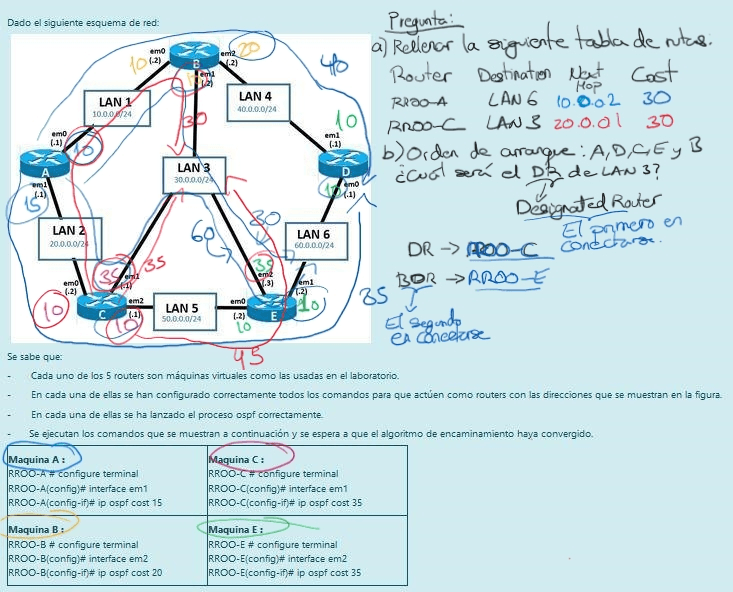 Dado el siguiente esquema de red:
em0
(.2)
10
B
em2
(.2)
20
em1
(.2)
40
LAN 1
10.0.0.0/24
LAN 4
40.0.0.0/24
em0
(.1)
10
30
10
em1
(.1)
A
em1
(.1)
15
LAN 3
30.0.0.0/24
D
em0
(.1)
10
LAN 2
20.0.0.0/24
60
30
LAN 6
60.0.0.0/24
em0
(.2)
10
C
35
em1
(.1)
35
em2
(.1)
10
LAN 5
50.0.0.0/24
em0
(.2)
10
35
em2
(.3)
E
em1
(.2)
10
35
45
Pregunta:
a) Rellenar la siguiente tabla de rutas.
Router Destination Next Hop Cost
RROO-A LAN 6 10.0.0.2 30
RROO-C LAN 3 20.0.0.1 30
b) Orden de arranque: A, D, C, E y B
¿Cuál será el DR de LAN 3?
Designated Router
El primero en
conectarse.
DR → RROO-C
BDR → RROO-E
El segundo
en conectarse
Se sabe que:
- Cada uno de los 5 routers son máquinas virtuales como las usadas en el laboratorio.
- En cada una de ellas se han configurado correctamente todos los comandos para que actúen como routers con las direcciones que se muestran en la figura.
- En cada una de ellas se ha lanzado el proceso ospf correctamente.
- Se ejecutan los comandos que se muestran a continuación y se espera a que el algoritmo de encaminamiento haya convergido.
Maquina A :
RROO-A # configure terminal
RROO-A(config)# interface em1
RROO-A(config-if)# ip ospf cost 15
Maquina C :
RROO-C # configure terminal
RROO-C(config)# interface em1
RROO-C(config-if)# ip ospf cost 35
Maquina B :
RROO-B # configure terminal
RROO-B(config)# interface em2
RROO-B(config-if)# ip ospf cost 20
Maquina E :
RROO-E # configure terminal
RROO-E(config)# interface em2
RROO-E(config-if)# ip ospf cost 35